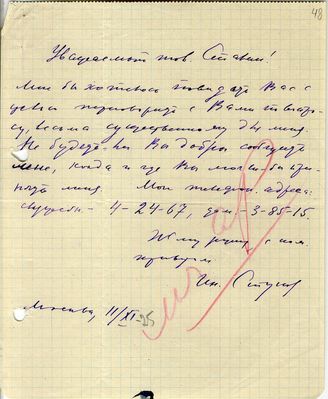 48
Уважаемый тов. Сталин!
Мне бы хотелось повидать Вас с
целью переговорить с Вами по вопро-
су, весьма существенному для меня.
Не будете ли Вы добры сообщить
мне, когда и где Вы могли бы при-
нять меня. Мои телефон. адреса:
служебн. - 4-24-67, дом. - 3-85-15.
Жму руку, с ком.
приветом
Ин.
Москва, 11/XI-25